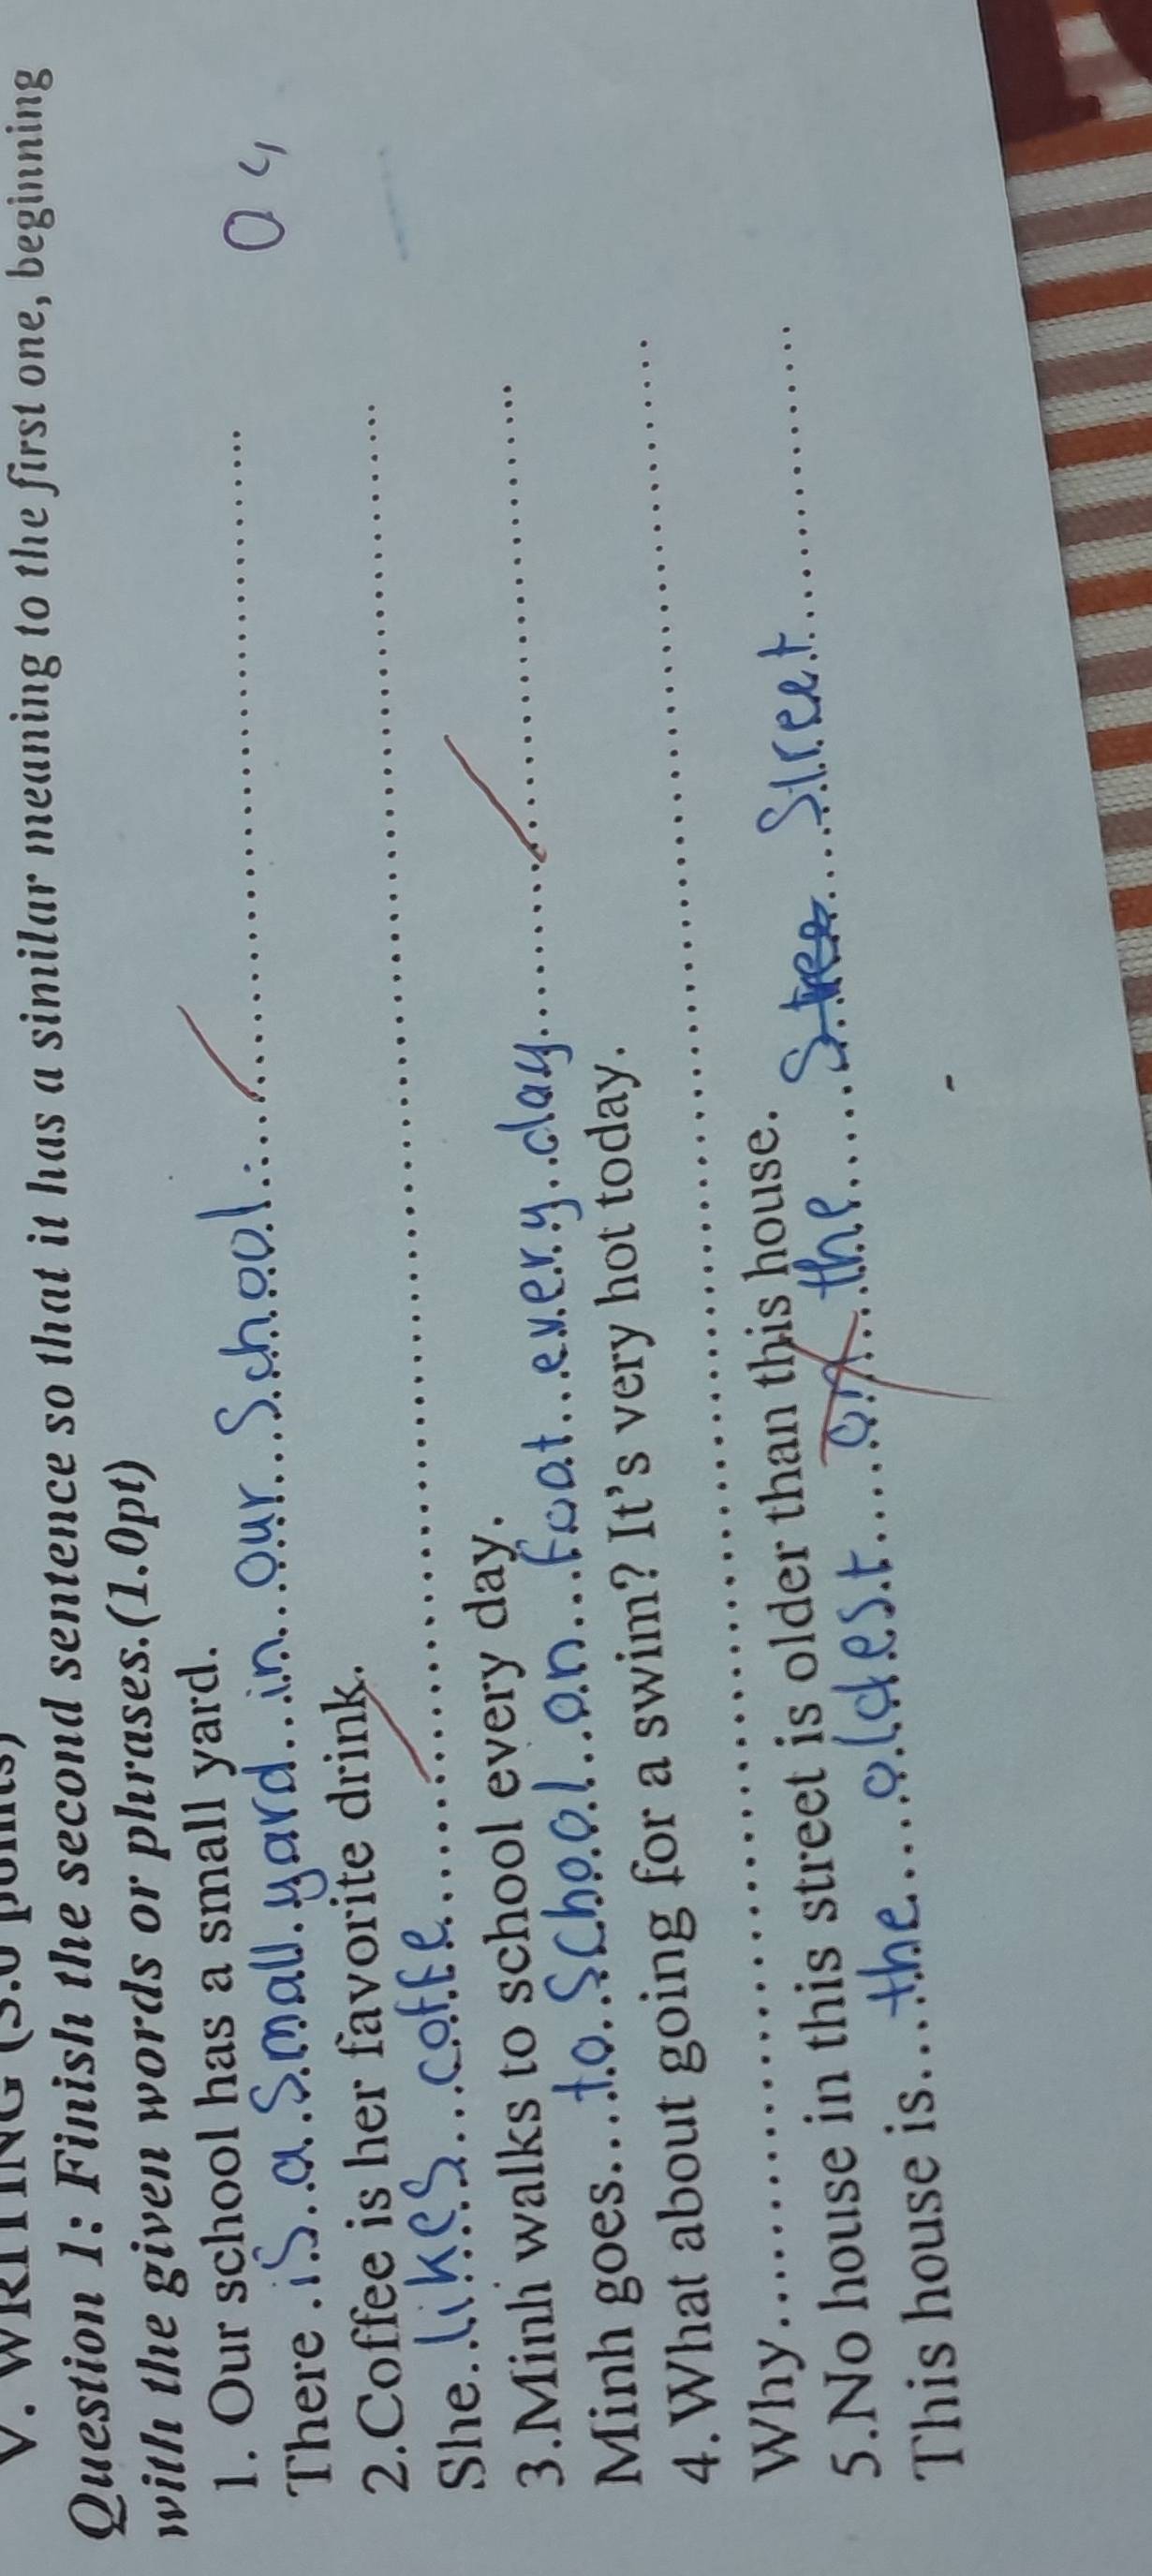 V. WRITING
Question 1: Finish the second sentence so that it has a similar meaning to the first one, beginning
with the given words or phrases.(1.0pt)
1. Our school has a small yard.
There is a small yard in our school
2.Coffee is her favorite drink.
She likes coffe
3.Minh walks to school every day.
Minh goes to school on foot every day
4.What about going for a swim? It's very hot today.
Why
5.No house in this street is older than this house.
This house is the oldest on the street